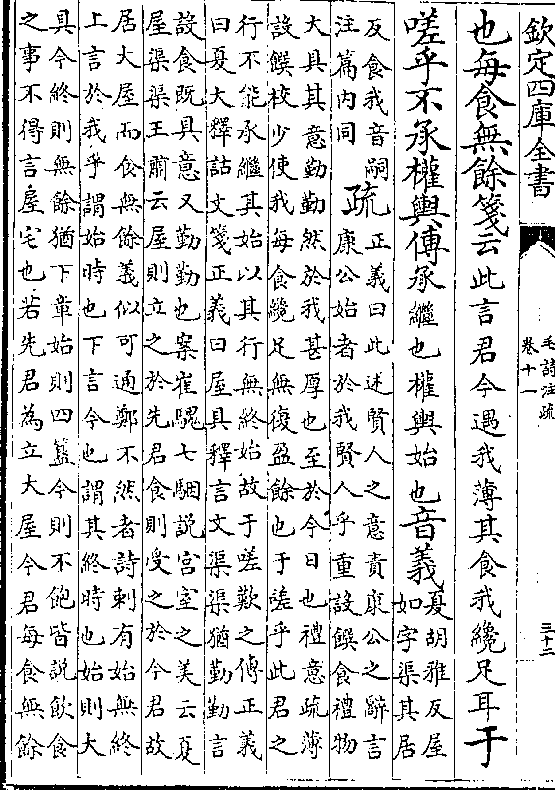 欽定四庫全書
毛詩注疏
卷十一
三十二
也每食無餘箋云此言君今遇我薄其食我纔足耳于
嗟乎不承權輿傳承繼也權輿始也音義夏胡雅反屋
如字渠其居
反食我音嗣
注篇内同疏正義曰此述賢人之意責康公之辭言
康公始者於我賢人乎重設饌食禮物
大具其意勤勤然於我甚厚也至於今日也禮意疏薄
設饌校少使我每食纔足無復盈餘也于嗟乎此君之
行不能承繼其始以其行無終始故于嗟歎之傳正義
曰夏大釋詁文箋正義曰屋具釋言文渠渠猶勤勤言
設食既具意又勤勤也案崔駰七駰說宫室之美云夏
屋渠渠王肅云屋則立之於先君食則受之於今君故
居大屋而食無餘義似可通鄭不然者詩刺有始無終
上言於我乎謂始時也下言今也謂其終時也始則大
具今終則無餘猶下章始則四簋今則不飽皆說飲食
之事不得言屋宅也若先君為立大屋今君每食無餘